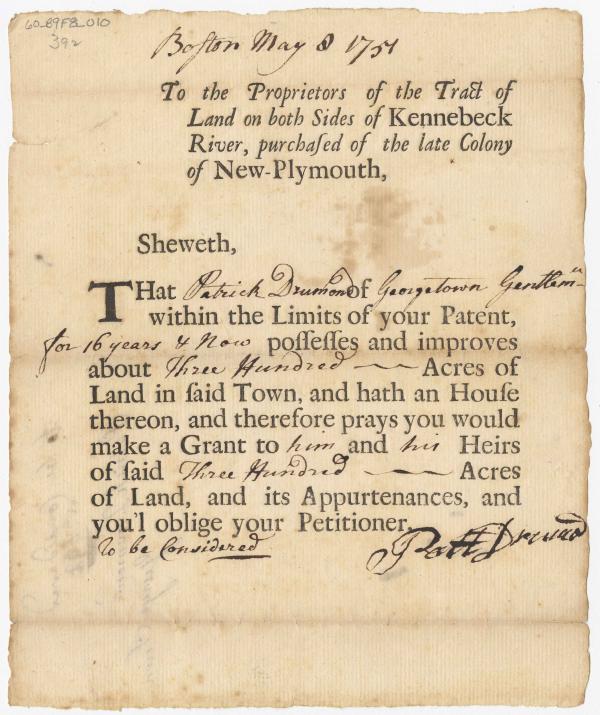 60-89F8-010
392
Boston May 8 1751
To the Proprietors of the Tract of
Land on both Sides of Kennebeck
River, purchaſed of the late Colony
of New-Plymouth,
Sheweth,
THat Patrick Drumond of Georgetown Gentlemn
within the Limits of your Patent,
for 16 years & Now poſſeſſes and improves
about Three Hundred Acres of
Land in ſaid Town, and hath an Houſe
thereon, and therefore prays you would
make a Grant to him and his Heirs
of ſaid Three Hundred Acres
of Land, and its Appurtenances, and
you'l oblige your Petitioner.
to be Considered
Patt Drumond